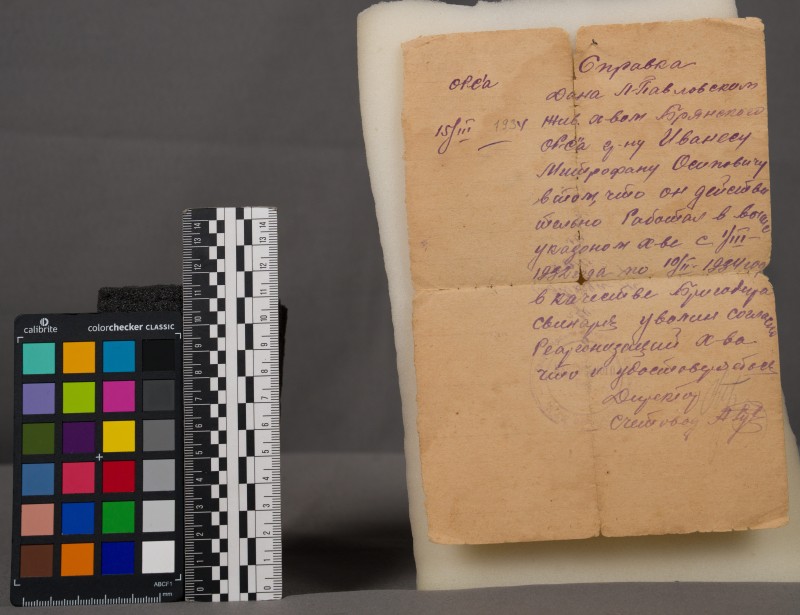 calibrite colorchecker CLASSIC
ABCF1
mm
0 1 2 3 4 5 6 7 8 9 10 11 12 13 14
0 1 2 3 4 5 6 7 8 9 10 11 12 13 14
ОРС'а
15/III 1934
Справка
Дана Л-Павловском
жив. х-вом Брянского
ОРСа гр-ну Иванесу
Митрофану Осиповичу
в том, что он действи
тельно Работал в выше
указоном х-ве с 1/III-
1932 года по 10/II-1934 год
в качестве Бригадира
свинарь уволин согласно
Реорганизаций х-ва
что и удостоверяется
Директор
Счетовод